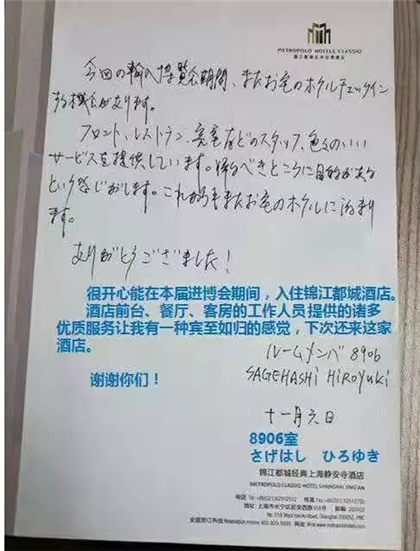 METROPOLO HOTELS CLASSIQ
今回の輸入博覧会期間、またお宅のホテルチェックイン
する機会があります。
フロント、レストラン、客室などのスタッフ、色々のいい
サービスを提供しています。帰るべきところに目的がある
という感じがします。これからもまたお宅のホテルに泊まり
ます。
ありがとうございました!
很开心能在本届进博会期间，入住锦江都城酒店。
酒店前台、餐厅、客房的工作人员提供的诸多
优质服务让我有一种宾至如归的感觉，下次还来这家
酒店。
谢谢你们！
ルームナンバ 8906
SAGEHASHI HIROYUKI
十一月六日
8906室
さげはし ひろゆき
锦江都城经典上海静安寺酒店
METROPOLO HOTELS CLASSIQ SHANGHAI JING'AN